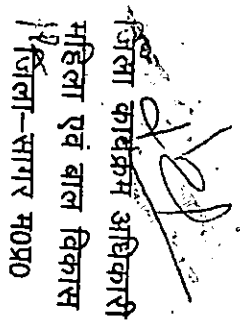 जिला कार्यक्रम अधिकारी
महिला एवं बाल विकास
जिला-सागर म0प्र0